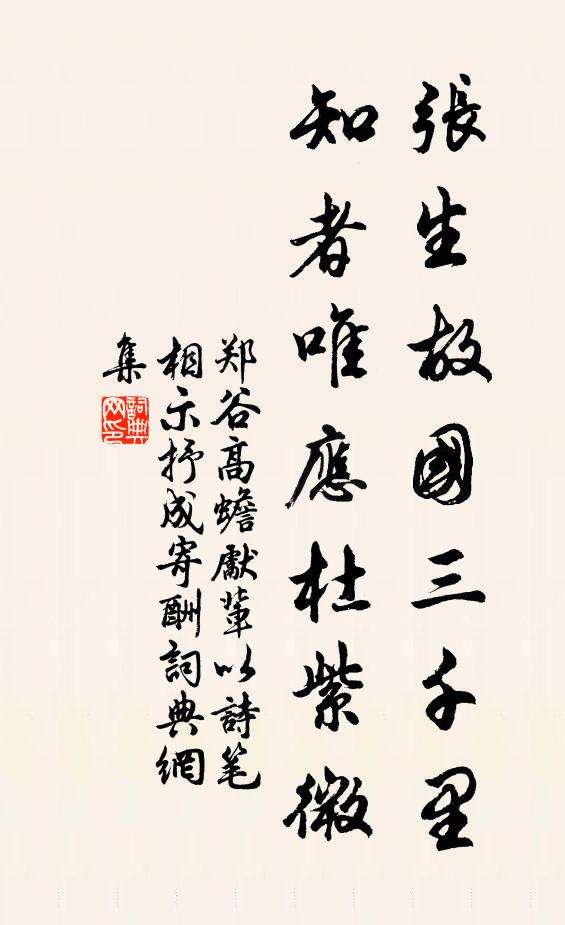 張生故國三千里
知者唯應杜紫微
郑谷高蟾獻輩以詩笔
相示抒成寄酬詞典網
集
詞典网印